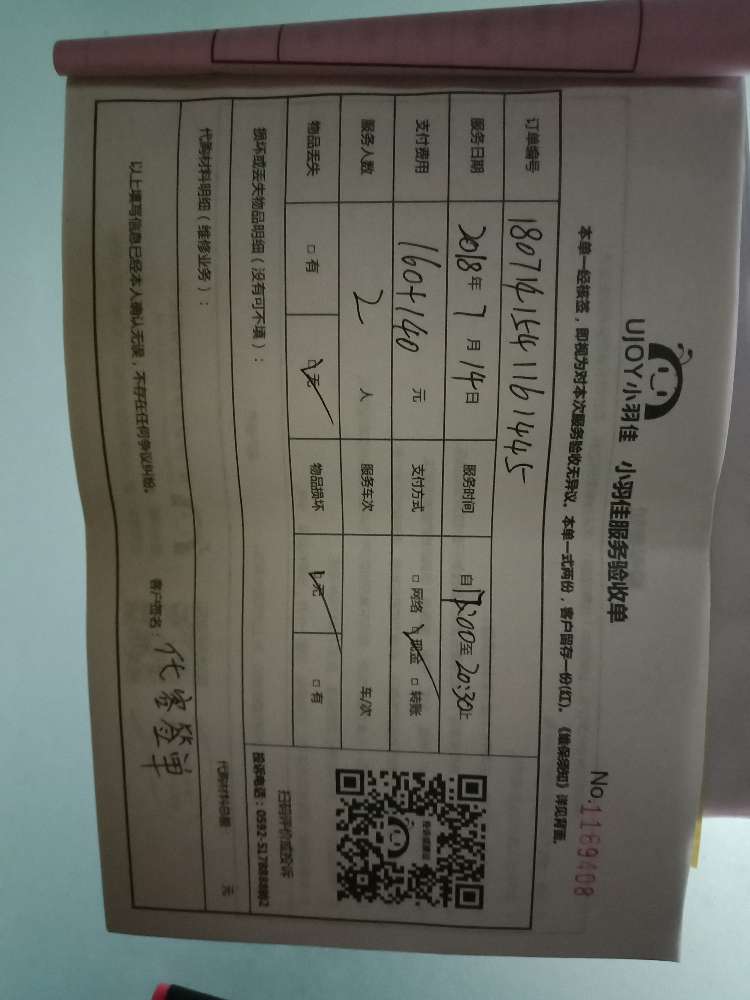 UJOY小羽佳 小羽佳服务验收单
No.1169408
本单一经核签，即视为对本次服务验收无异议。本单一式两份，客户留存一份(红)。《维保须知》详见背面。
订单编号 180714154116144 5
服务日期 2018年7月14日 服务时间 自17:00至20:30止
支付费用 160+140 元 支付方式 □网络 ☑现金 □转账
服务人数 2 人 服务车次 车/次
物品丢失 □有 ☑无 物品损坏 ☑无 □有
投诉或建议
扫码评价或投诉
投诉电话：0592-5178888转2
损坏或丢失物品明细（没有可不填）：
代购材料明细（维修业务）：
代购材料总额 元
以上填写信息已经本人确认无误，不存在任何争议纠纷。
客户签名：代客签单